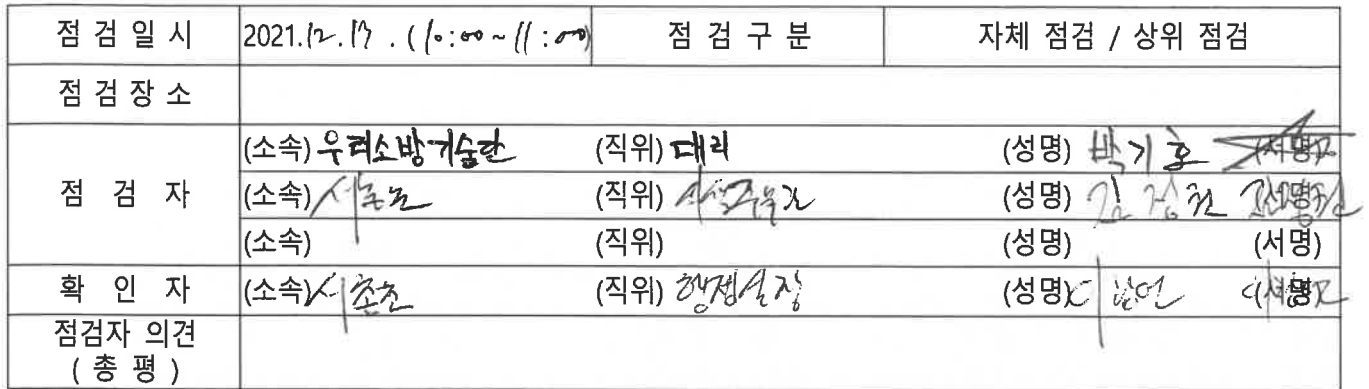 점 검 일 시 2021.12.17 . ( 10:00 ~ 11:00) 점 검 구 분 자체 점검 / 상위 점검
점 검 장 소
점 검 자
(소속) 우리소방기술단 (직위) 대리 (성명) 박기호 (서명)
(소속) 서촌초 (직위) (성명) 김정천 (서명)
(소속) (직위) (성명) (서명)
확 인 자 (소속) 서촌초 (직위) 행정실장 (성명) (서명)
점검자 의견
( 총 평 )